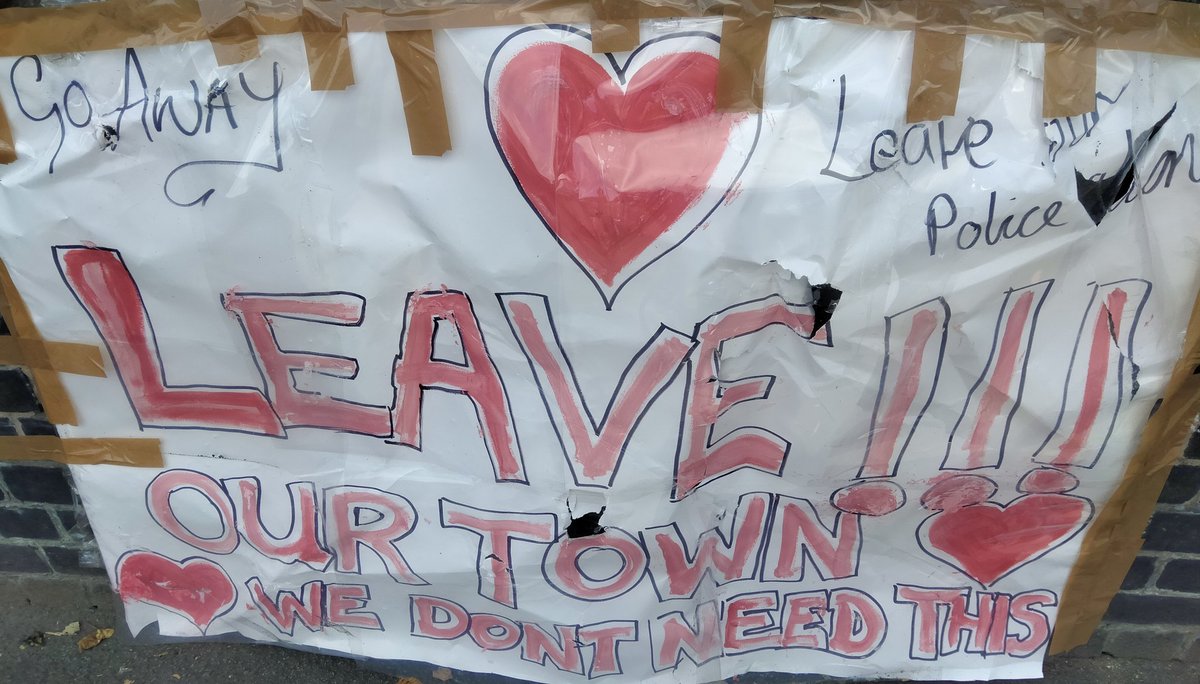 Go Away
Leave our
Police alone
LEAVE!!!
OUR TOWN
WE DONT NEED THIS